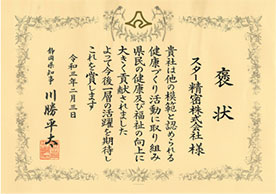 褒状
スター精密株式会社 様
貴社は他の模範と認められる
健康づくり活動に取り組み
県民の健康及び福祉の向上に
大きく貢献されました
よって今後一層の活躍を期待し
これを賞します
令和三年二月三日
静岡県知事 川勝平太